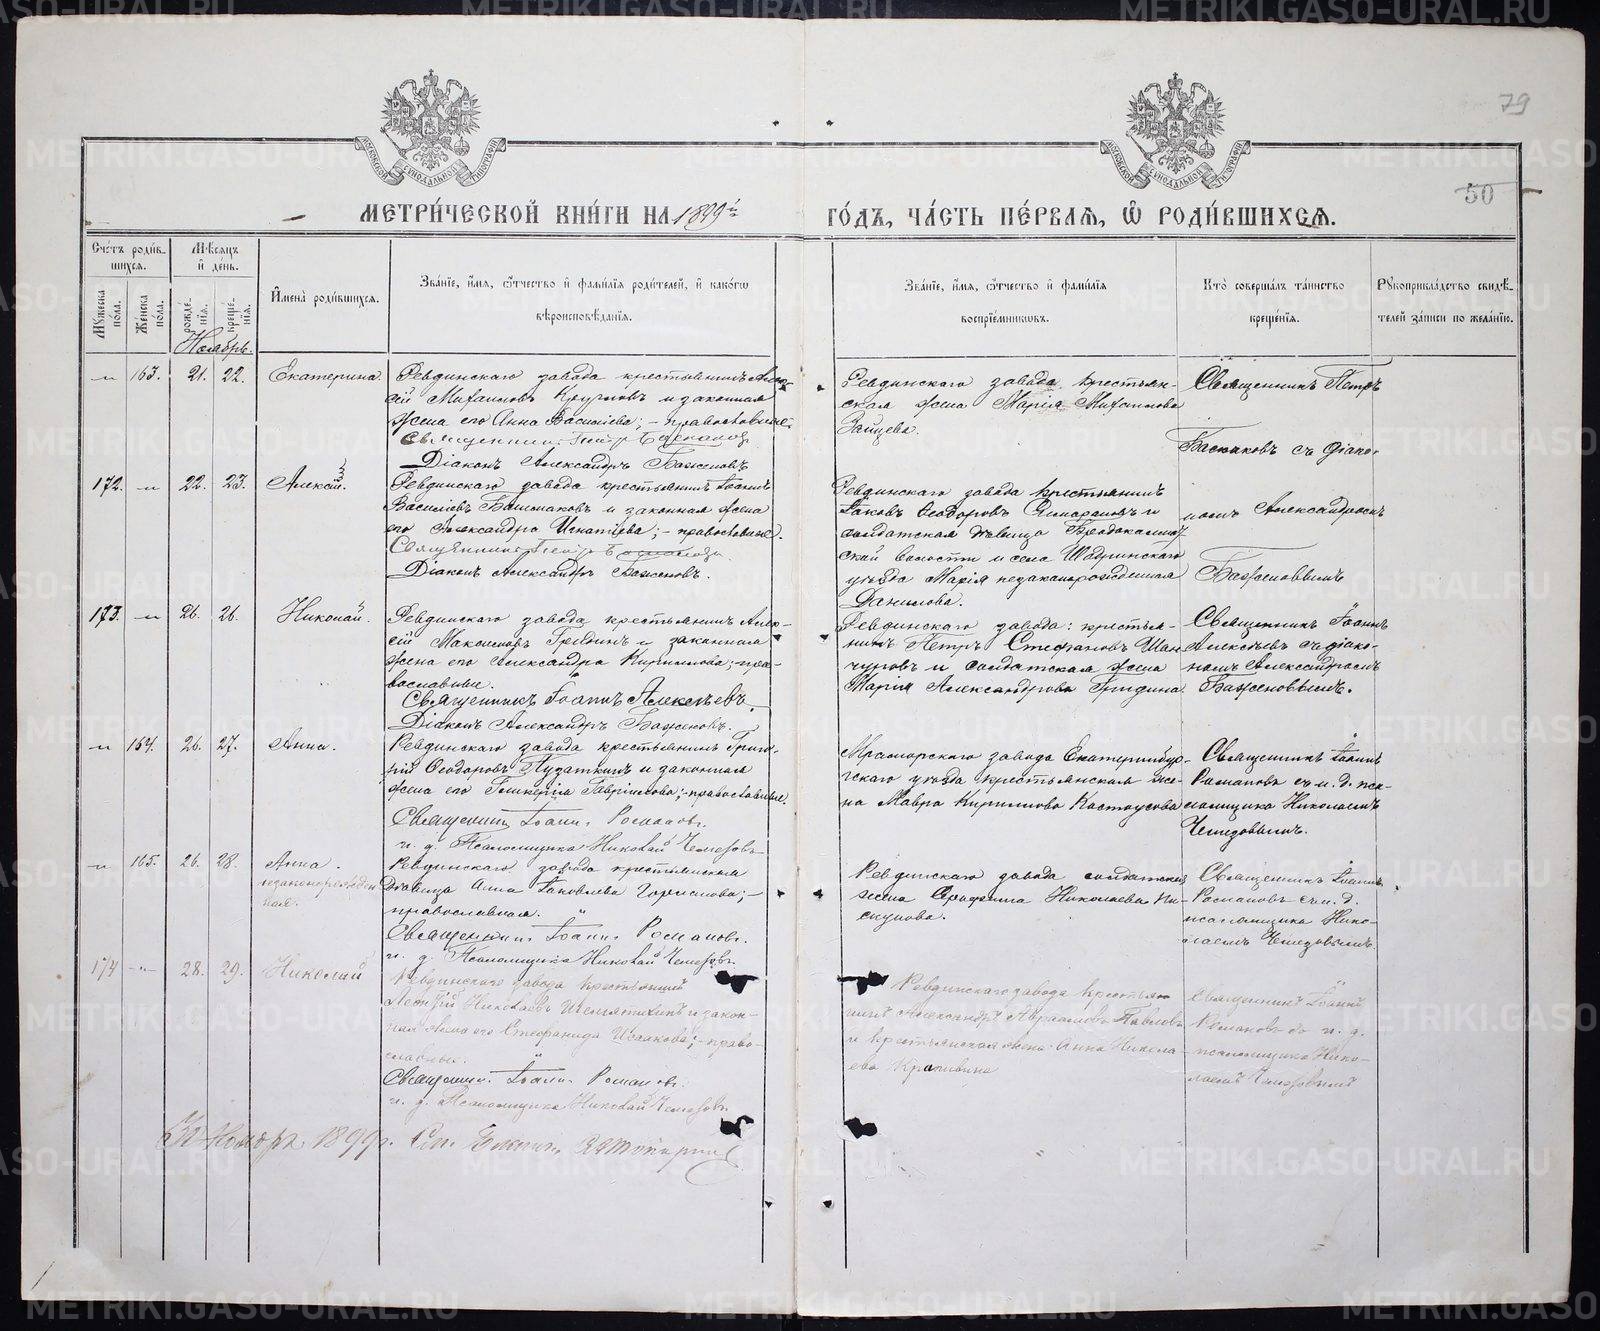 METRIKI.GASO-URAL.RU
79
50
МОСКОВСКОЙ СѴНОДАЛЬНОЙ ТИПОГРАФІИ
МОСКОВСКОЙ СѴНОДАЛЬНОЙ ТИПОГРАФІИ
МЕТРИ́ЧЕСКОЙ КНИ́ГИ НА 1899й
ГО́ДЪ, ЧА́СТЬ ПЕ́РВАѦ, Ѽ РОДИ́ВШИХСѦ.
Сче́тъ роди́в-
шихсѧ.
Мꙋжеска по́ла.
Же́нска по́ла.
Мѣ́сѧцъ
и҆ де́нь.
рожде́-
нїѧ.
креще́-
нїѧ.
И҆мена̀ роди́вшихсѧ.
Зва́нїе, и҆́мѧ, ѻ҆́тчество и҆ фами́лїѧ роди́телей, и҆ како́гѡ
вѣроисповѣ́данїѧ.
Зва́нїе, и҆́мѧ, ѻ҆́тчество и҆ фами́лїѧ
воспрїе́мникѡвъ.
Кто̀ соверша́лъ та́инство
креще́нїѧ.
Рꙋкоприкла́дство свидѣ́-
телей за́писи по жела́нїю.
Ноябрь.
163. 21. 22. Екатерина
Ревдинскаго завода крестьянинъ Алек-
сій Михаиловъ Кругловъ и законная
жена его Анна Василіева; - православные.
Діаконъ Александръ Баженовъ
Ревдинскаго завода крестьян-
ская жена Марія Михаилова
Зайцева.
Священникъ Петръ
съ діако-
172. 22. 23. Алексій.
Ревдинскаго завода крестьянинъ Іоаннъ
Василіевъ Башмаковъ и законная жена
его Александра Игнатіева; - православные.
Діаконъ Александръ Баженовъ.
Ревдинскаго завода крестьянинъ
Іаковъ Ѳеодоровъ и
солдатская дѣвица
ской волости и села Шадринскаго
уѣзда Марія незаконорожденная
Данилова.
номъ Александромъ
Баженовымъ
173. 26. 26. Николай.
Ревдинскаго завода крестьянинъ Алек-
сій Максимовъ Гридинъ и законная
жена его Александра Кириллова; - пра-
вославные.
Священникъ Іоаннъ Алексѣевъ.
Діаконъ Александръ Баженовъ.
Ревдинскаго завода: крестья-
нинъ Петръ Стефановъ Шан-
чуровъ и солдатская жена
Марія Александрова Гридина
Священникъ Іоаннъ
Алексѣевъ съ діако-
номъ Александромъ
Баженовымъ.
164. 26. 27. Анна.
Ревдинскаго завода крестьянинъ Григо-
рій Ѳеодоровъ Пузаткинъ и законная
жена его Гликерія Гавріилова; - православные.
Священникъ Іоаннъ Романовъ.
и. д. Псаломщика Николай Чемезовъ
Мраморскаго завода Екатеринбур-
гскаго уѣзда крестьянская же-
на Мавра Кириллова Костоусова
Священникъ Іоаннъ
Романовъ съ и. д. пса-
ломщика Николаемъ
Чемезовымъ.
165. 26. 28. Анна.
незаконорожден
ная.
Ревдинскаго завода крестьянская
дѣвица Анна Іаковлева; -
православная.
Священникъ Іоаннъ Романовъ.
и. д. Псаломщика Николай Чемезовъ
Ревдинскаго завода солдатская
жена Серафима Николаева Пи-
скунова.
Священникъ Іоаннъ
Романовъ съ и. д.
псаломщика Нико-
лаемъ Чемезовымъ.
174 28. 29. Николай
Ревдинскаго завода крестьянинъ
Леонтій Николаевъ и закон-
ная жена его Стефанида Исаакова; - право-
славные.
Священникъ Іоаннъ Романовъ.
и. д. Псаломщика Николай Чемезовъ.
Ревдинскаго завода крестьян
нинъ Александръ Авраамовъ Павловъ
и крестьянская жена Анна Никола-
ева Крапивина
Священникъ Іоаннъ
Романовъ съ и. д.
псаломщика Нико-
лаемъ Чемезовымъ
30 Ноября 1899 г.